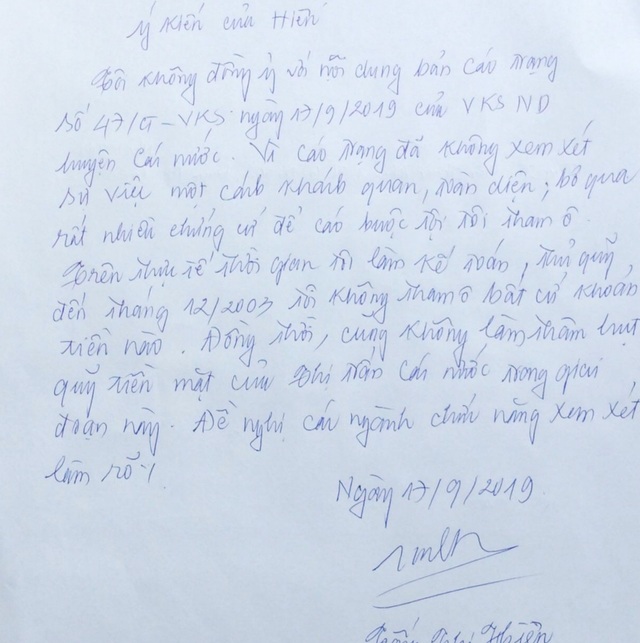 ý kiến của Hiền
Tôi không đồng ý với nội dung bản cáo trạng
số 47/CT-VKS ngày 17/9/2019 của VKS ND
huyện Cái nước. Vì cáo trạng đã không xem xét
sự việc một cách khách quan, toàn diện; bỏ qua
rất nhiều chứng cứ để cáo buộc tội tôi tham ô.
Trên thực tế thời gian tôi làm kế toán, thủ quỹ,
đến tháng 12/2003 tôi không tham ô bất cứ khoản
tiền nào. Đồng thời, cũng không làm thâm hụt
quỹ tiền mặt của Thị trấn Cái nước trong giai
đoạn này. Đề nghị các ngành chức năng xem xét
làm rõ./.
Ngày 17/9/2019
Thị Hiền